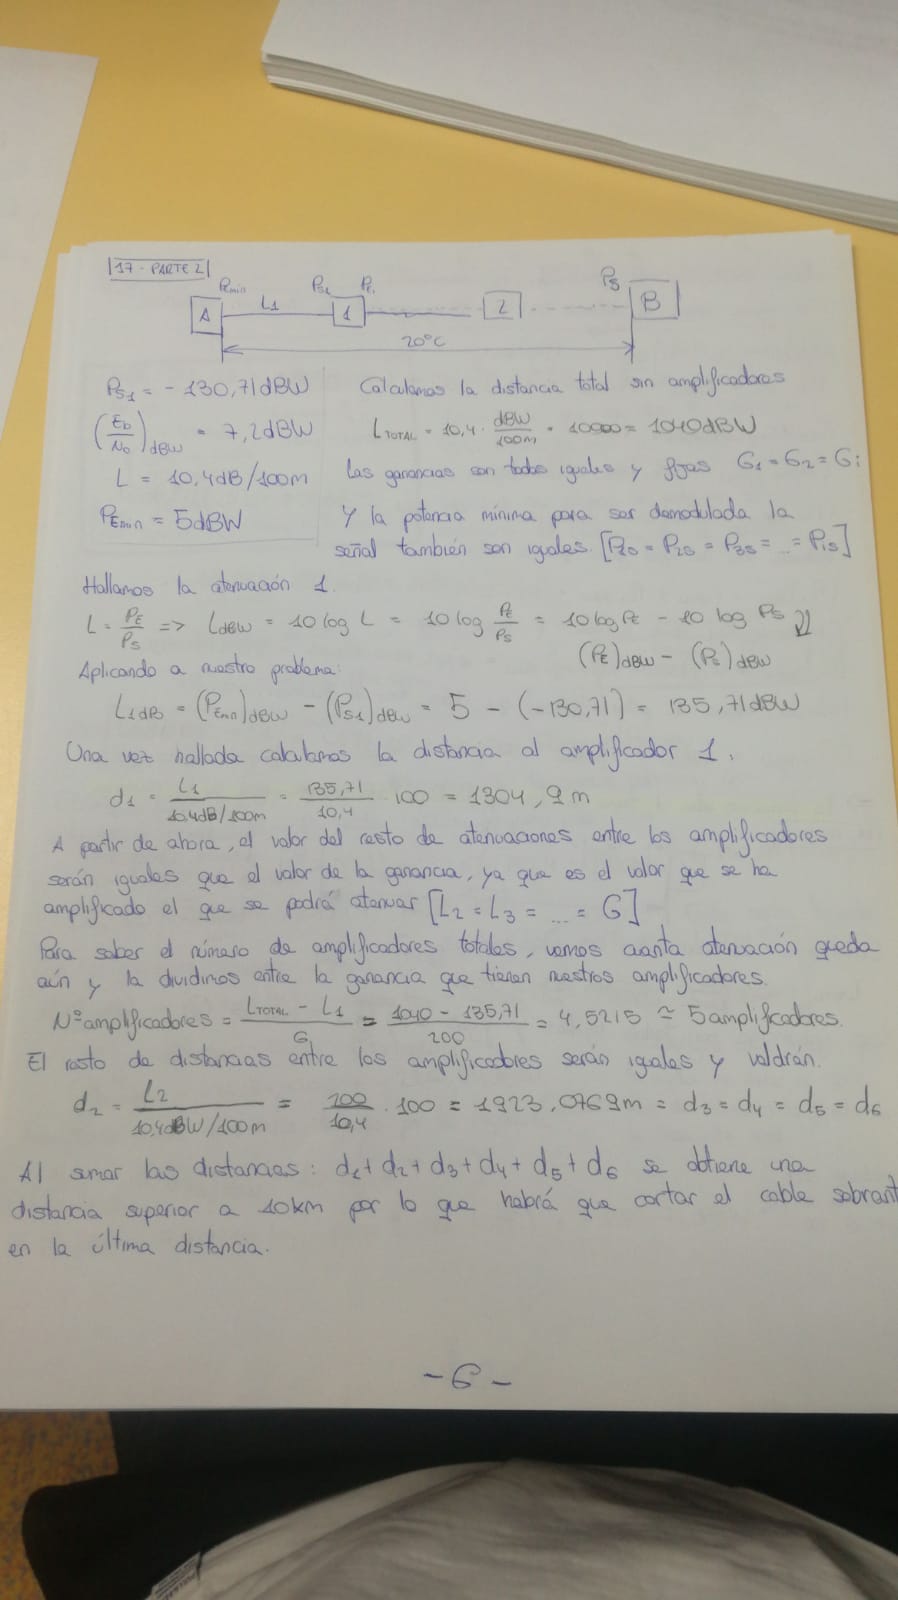 17 - PARTE 2
PEmin PS1 PE1 PS
A L1 1 2 B
20ºC
PS1 = -130,71dBW Calculamos la distancia total sin amplificadores
(Eb/No)dBW = 7,2dBW LTOTAL = 10,4 · dBW/100m · 10000 = 1040dBW
L = 10,4dB/100m Las ganancias son todas iguales y fijas G1=G2=Gi
PEmin = 5dBW Y la potencia mínima para ser demodulada la
señal también son iguales. [P1S = P2S = P3S = ... = PiS]
Hallamos la atenuación 1.
L = PE/PS => LdBW = 10 log L = 10 log PE/PS = 10 log PE - 10 log PS
(PE)dBW - (PS)dBW
Aplicando a nuestro problema:
L1dB = (PEmin)dBW - (PS1)dBW = 5 - (-130,71) = 135,71dBW
Una vez hallada calculamos la distancia al amplificador 1.
d1 = L1/10,4dB/100m = 135,71/10,4 · 100 = 1304,9m
A partir de ahora, el valor del resto de atenuaciones entre los amplificadores
serán iguales que el valor de la ganancia, ya que es el valor que se ha
amplificado el que se podrá atenuar [L2 = L3 = ... = G]
Para saber el número de amplificadores totales, vemos cuanta atenuación queda
aún y la dividimos entre la ganancia que tienen nuestros amplificadores.
Nºamplificadores = LTOTAL - L1/G = 1040 - 135,71/200 = 4,5215 ≃ 5 amplificadores.
El resto de distancias entre los amplificadores serán iguales y valdrán.
d2 = L2/10,4dBW/100m = 200/10,4 · 100 = 1923,0769m = d3 = d4 = d5 = d6
Al sumar las distancias: d1+d2+d3+d4+d5+d6 se obtiene una
distancia superior a 10km por lo que habrá que cortar el cable sobrant
en la última distancia.
-6-